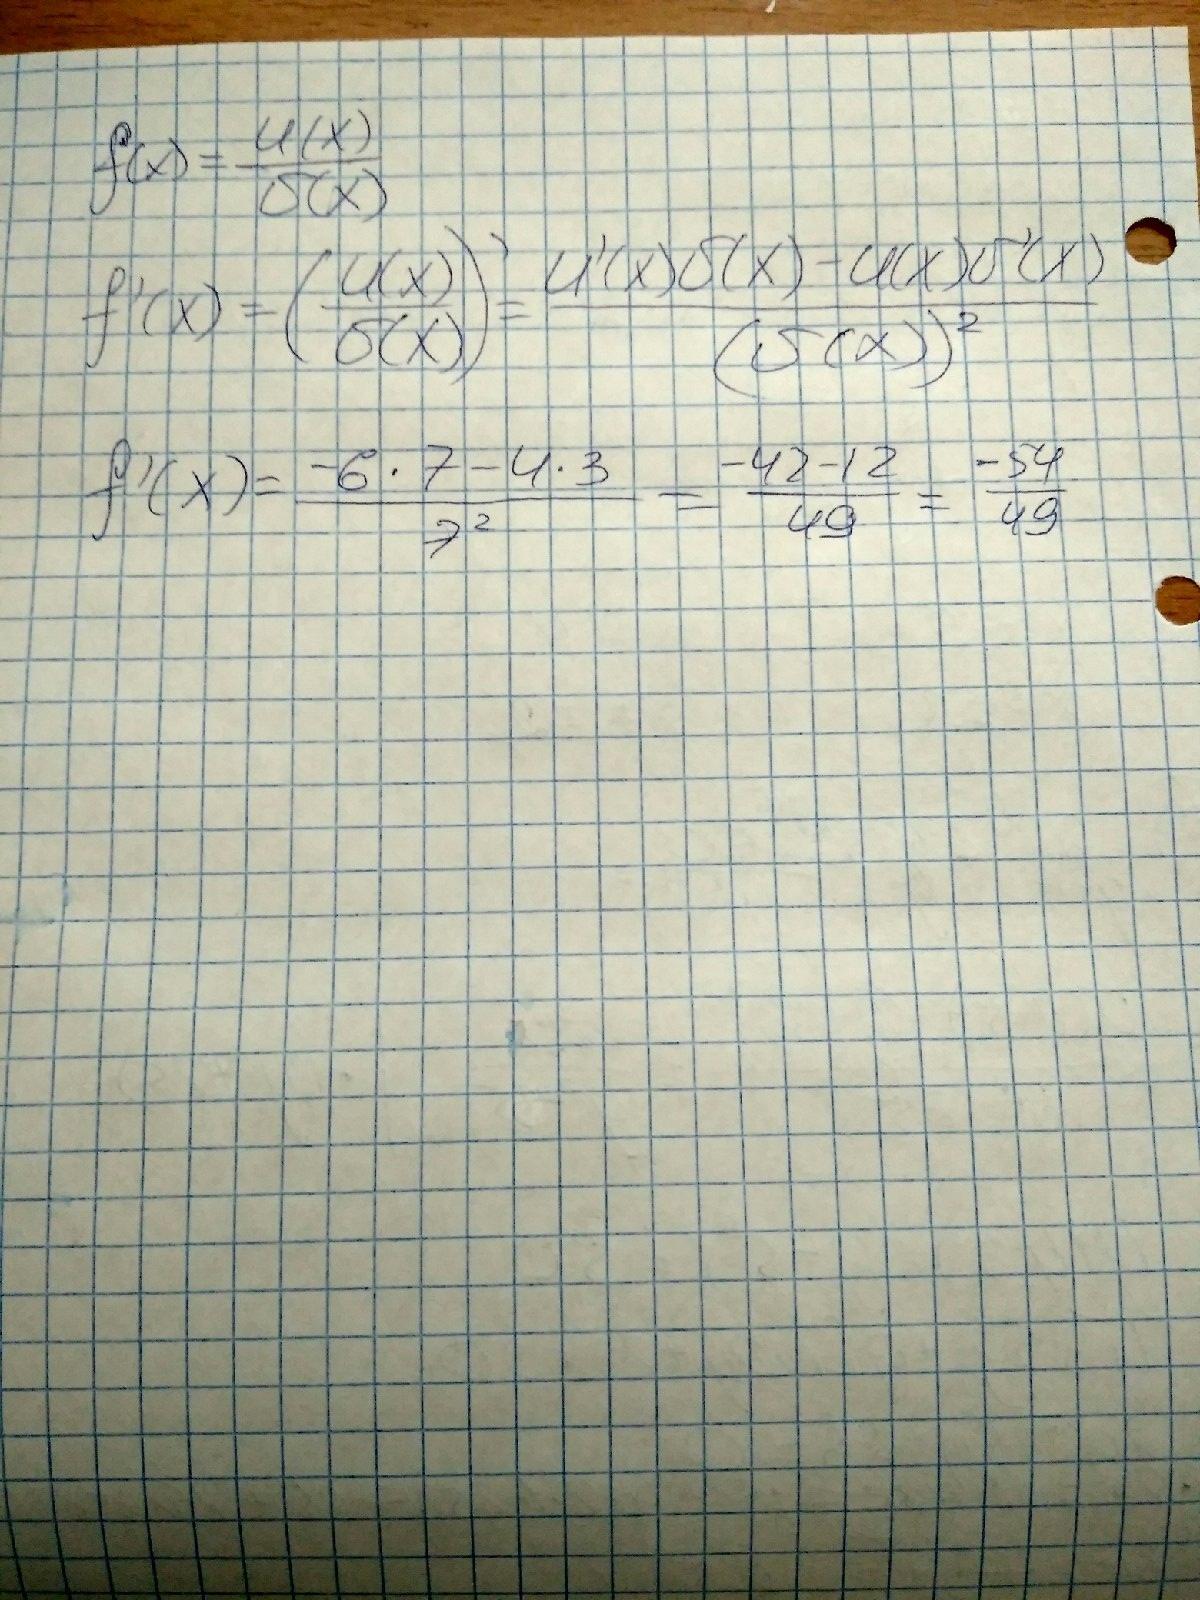 f(x) = u(x)/v(x)
f'(x) = (u(x)/v(x))' = (u'(x)v(x) - u(x)v'(x))/(v(x))²
f'(x) = (-6·7-4·3)/7² = (-42-12)/49 = -54/49